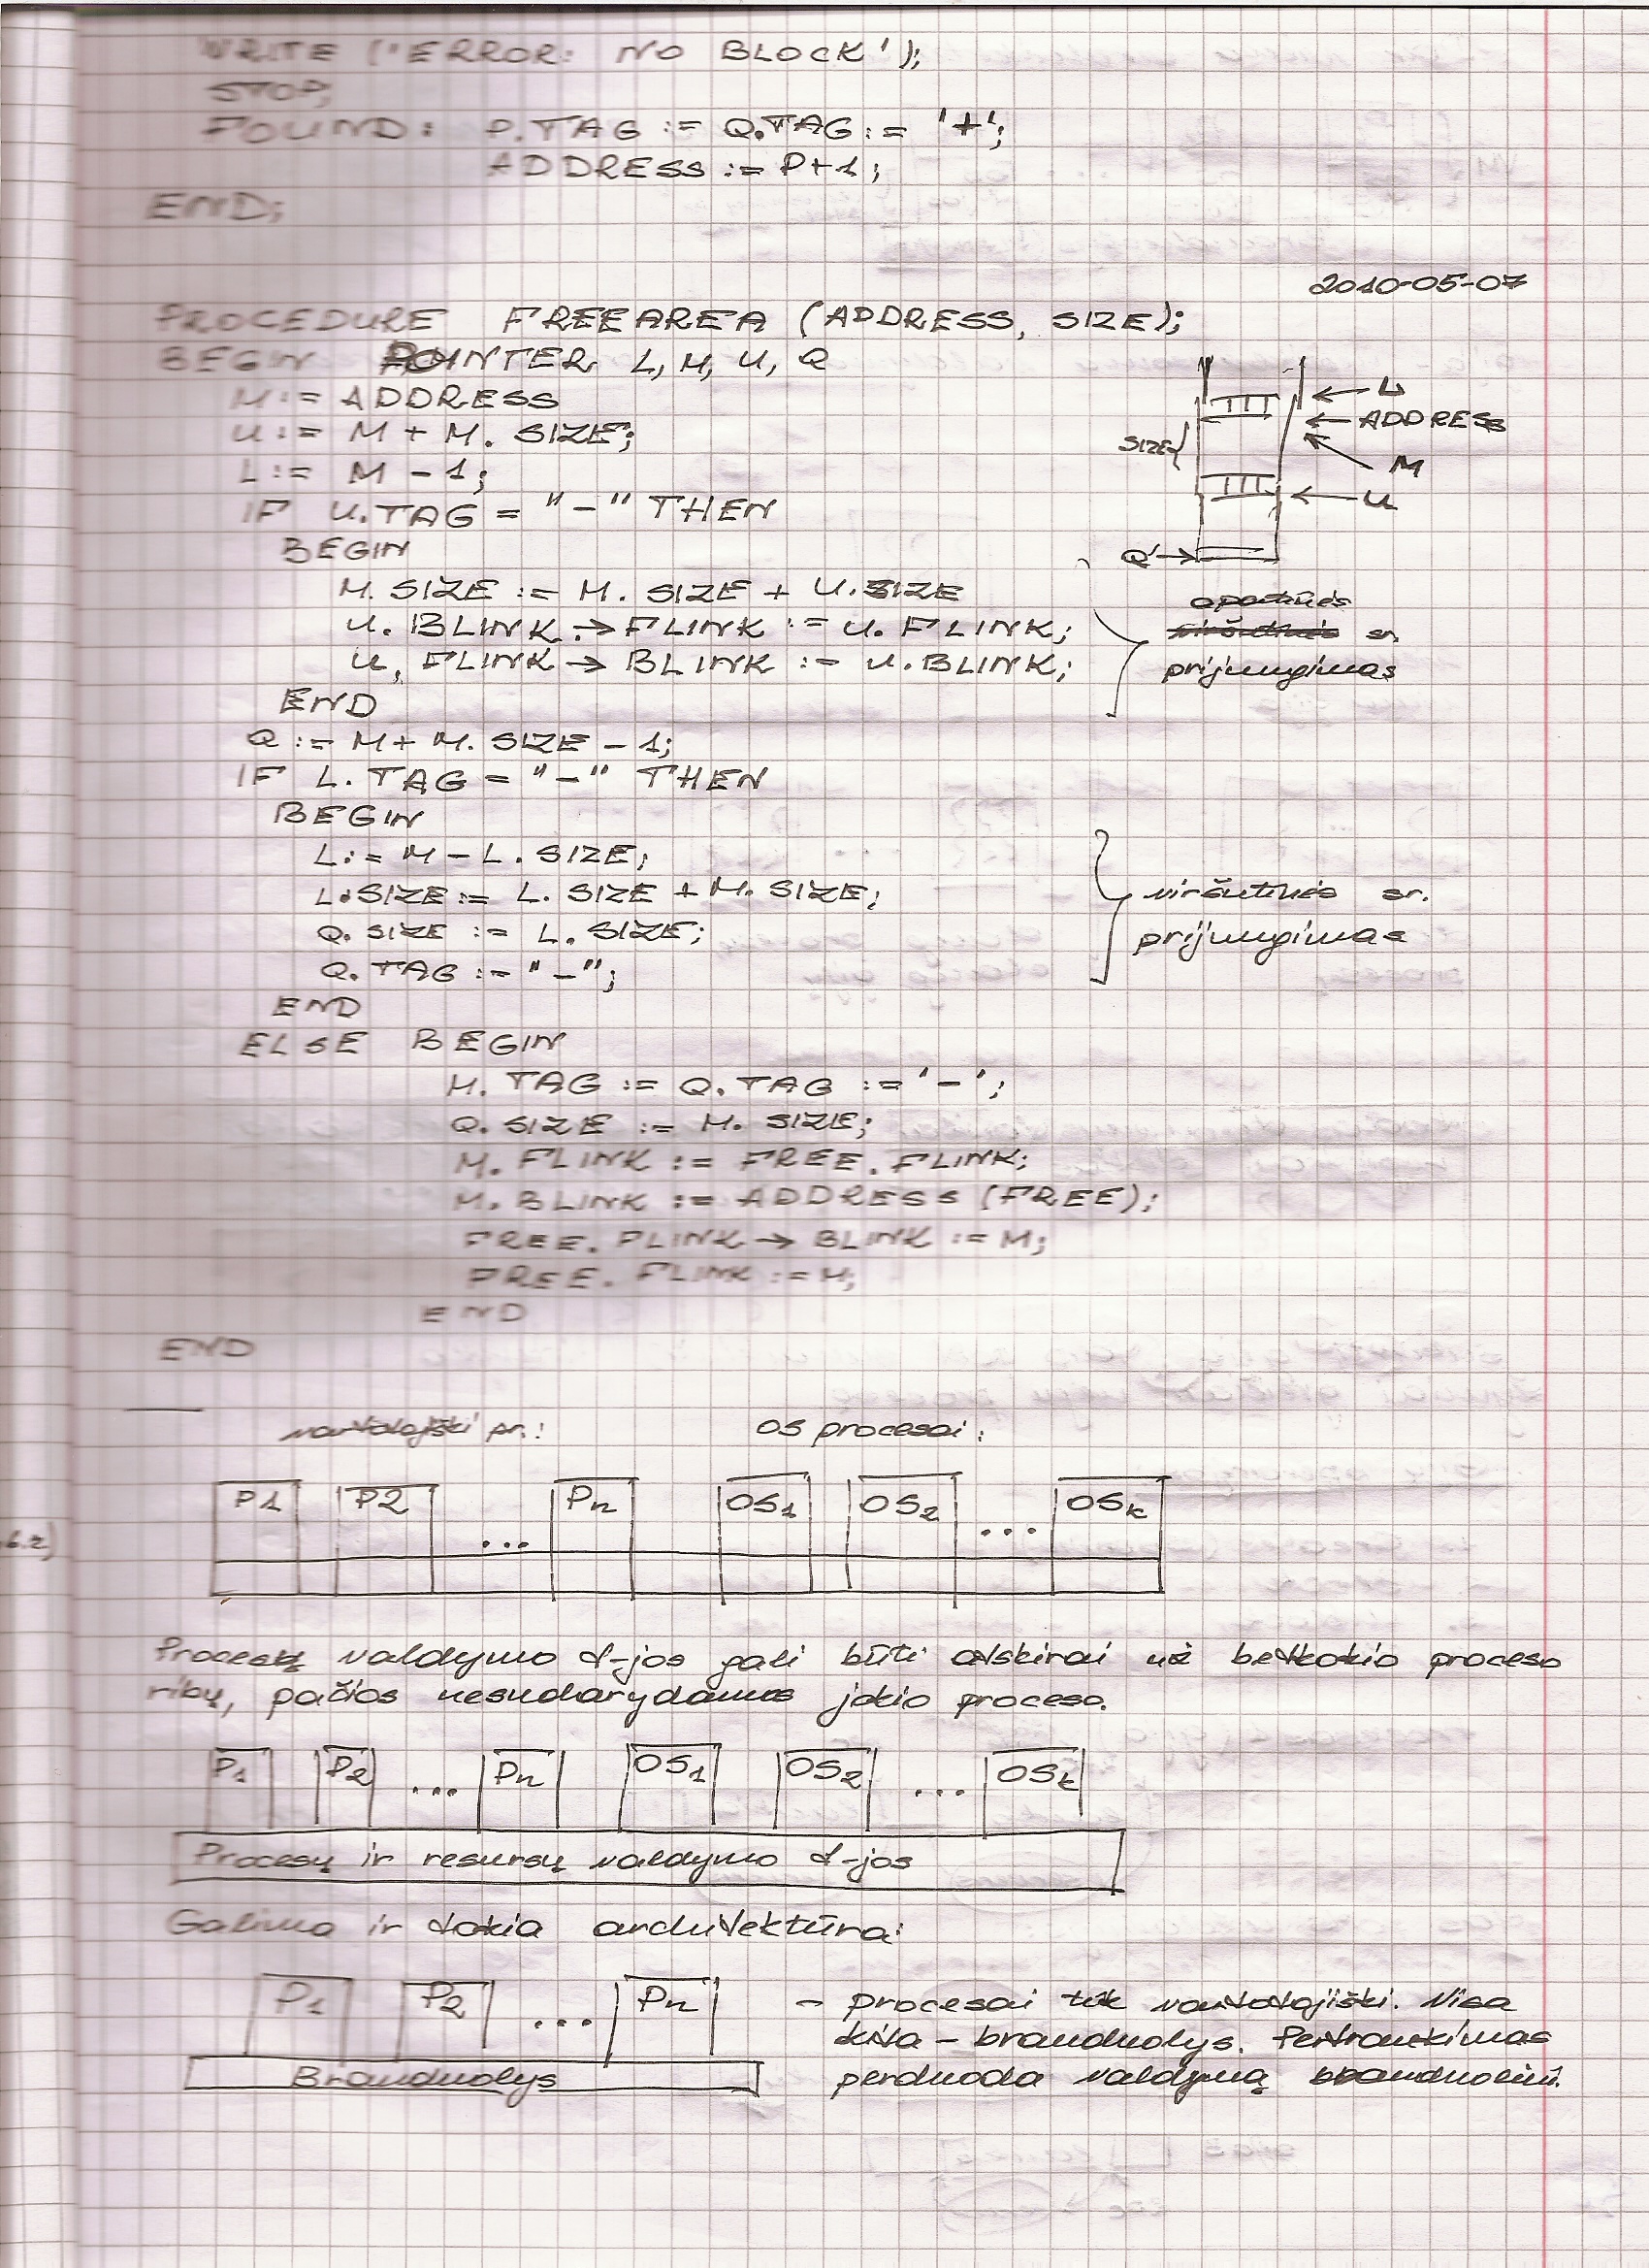 WRITE ('ERROR: NO BLOCK');
STOP;
FOUND: P.TAG := Q.TAG := '+';
ADDRESS := P+1;
END;
2010-05-07
PROCEDURE FREEAREA (ADDRESS, SIZE);
BEGIN POINTER L, M, U, Q
M := ADDRESS
U := M + M. SIZE;
L := M - 1;
IF U.TAG = "-" THEN
BEGIN
M. SIZE := M. SIZE + U.SIZE
U. BLINK → FLINK := U. FLINK;
U, FLINK → BLINK := U.BLINK;
END
Q := M + M. SIZE - 1;
IF L. TAG = "-" THEN
BEGIN
L := M - L. SIZE;
L.SIZE := L. SIZE + M. SIZE;
Q. SIZE := L. SIZE;
Q. TAG := "-";
END
ELSE BEGIN
M. TAG := Q. TAG := '-';
Q. SIZE := M. SIZE;
M. FLINK := FREE. FLINK;
M. BLINK := ADDRESS (FREE);
FREE. FLINK → BLINK := M;
FREE. FLINK := M;
END
END
L
ADDRESS
SIZE
M
U
Q
apatinės
viršutinės sr.
prijungimas
viršutinės sr.
prijungimas
vartotojiški pr.:
OS procesai:
P1 P2 ... Pn OS1 OS2 ... OSk
6.2)
Procesų valdymo f-jos gali būti atskirai už betkokio proceso
ribų, pačios nesudarydamos jokio proceso.
P1 P2 ... Pn OS1 OS2 ... OSk
Procesų ir resursų valdymo f-jos
Galima ir tokia architektūra:
P1 P2 ... Pn
Branduolys
- procesai tik vartotojiški. Visa
kita - branduolys. Pertraukimas
perduoda valdymą branduoliui.